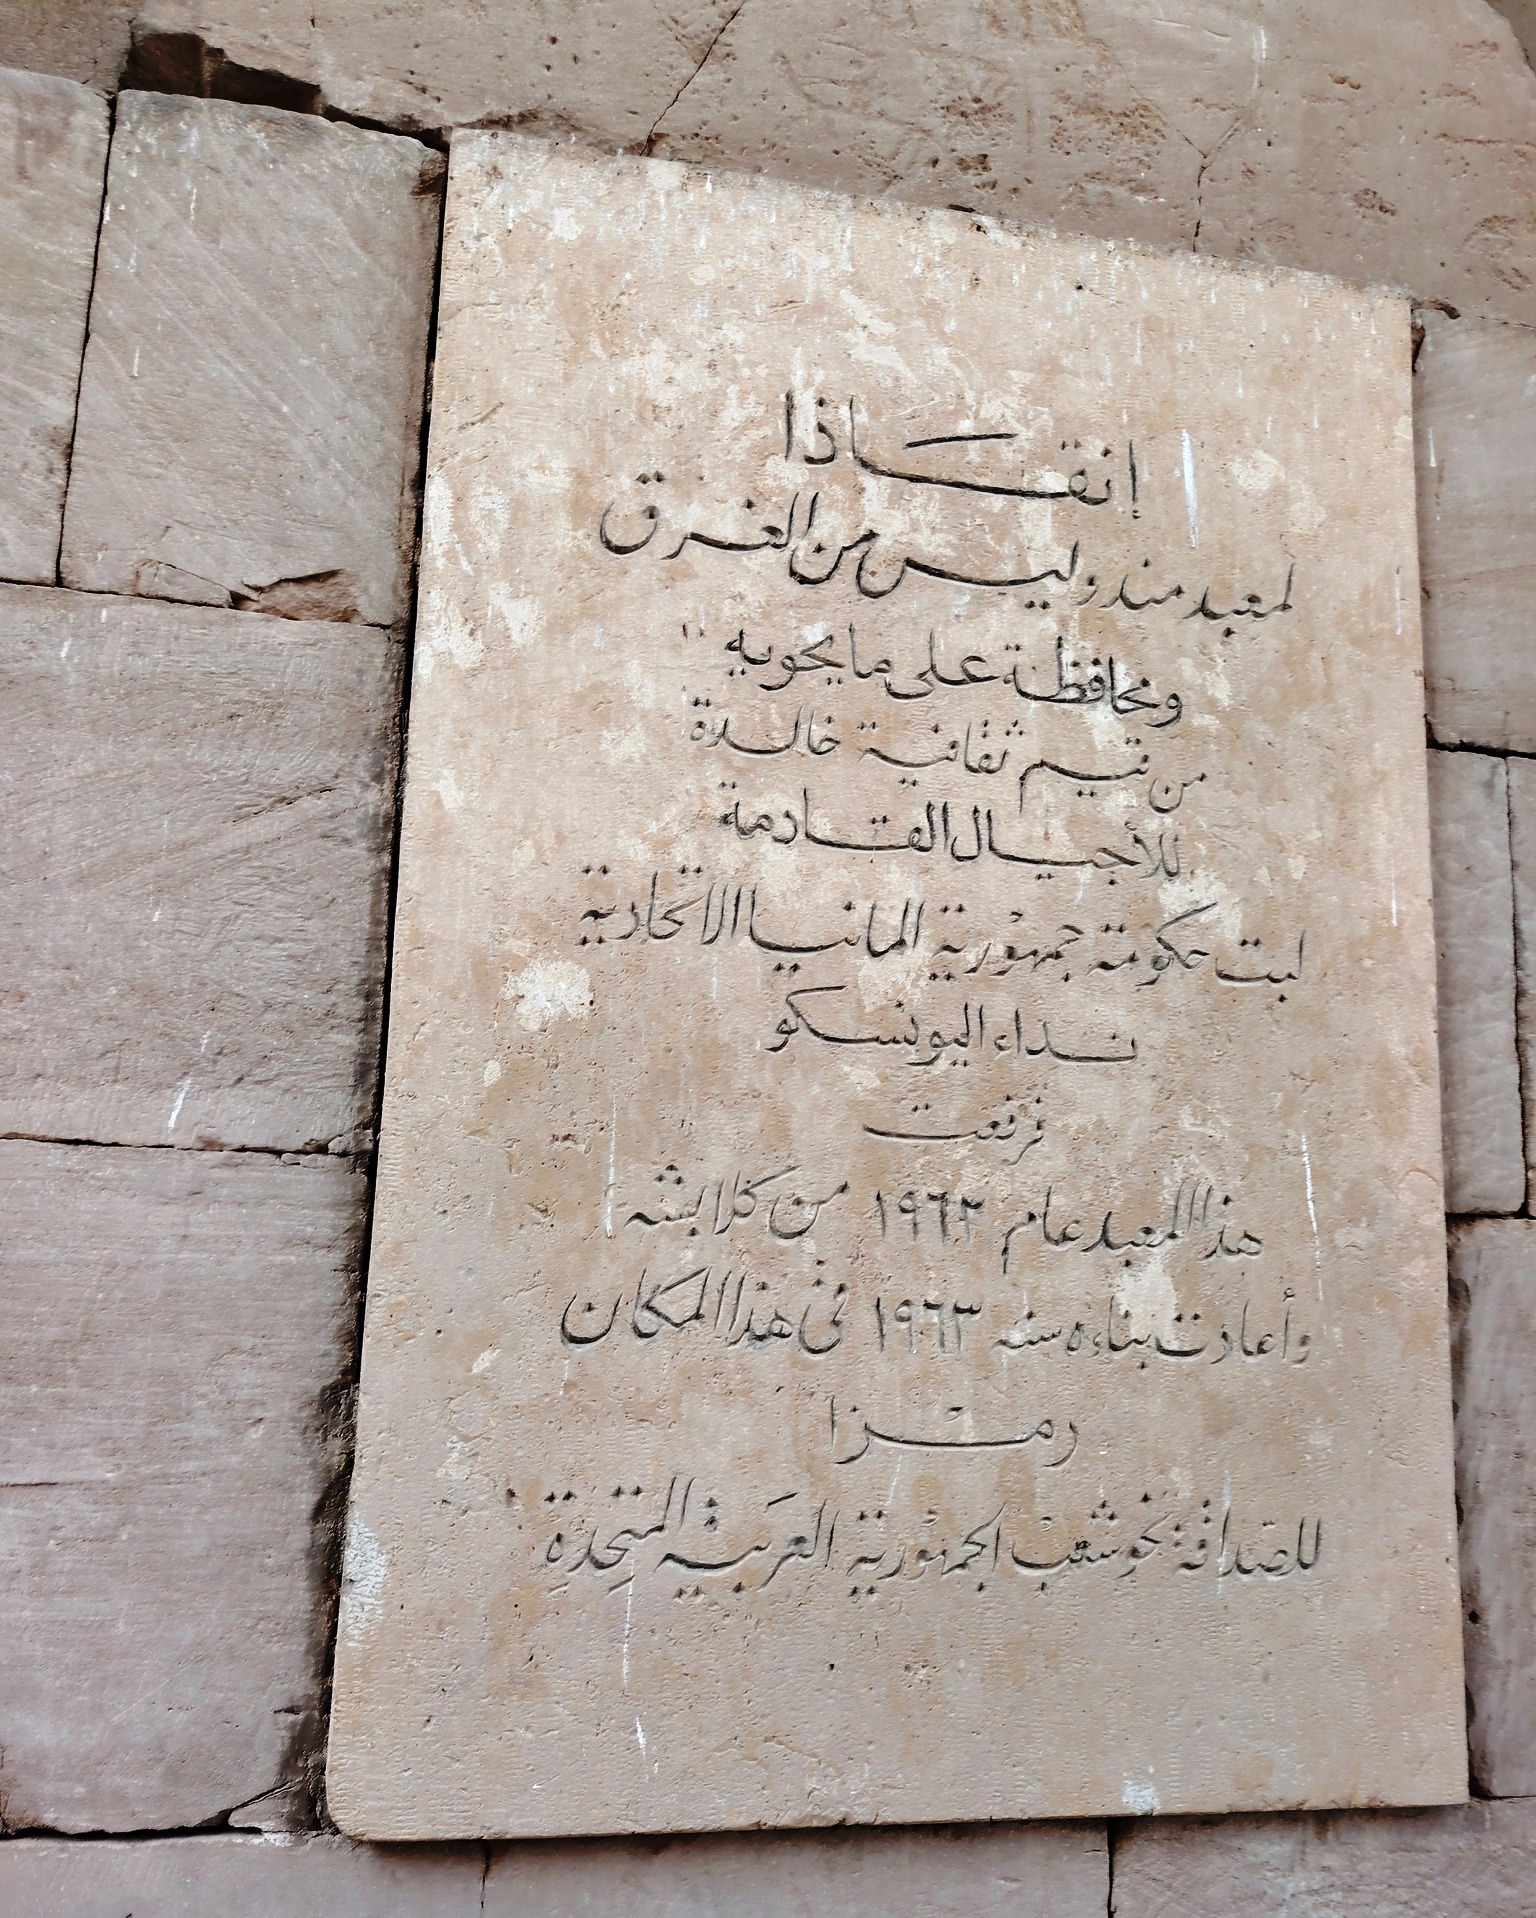 إنقاذا
لمعبد مندوليس من الغرق
ومحافظة على ما يحويه
من قيم ثقافية خالدة
للأجيال القادمة
لبت حكومة جمهورية المانيا الاتحادية
نداء اليونسكو
فرفعت
هذا المعبد عام ١٩٦٢ من كلابشه
وأعادت بناءه سنه ١٩٦٣ فى هذا المكان
رمزا
للصداقة نحو شعب الجمهورية العربية المتحدة